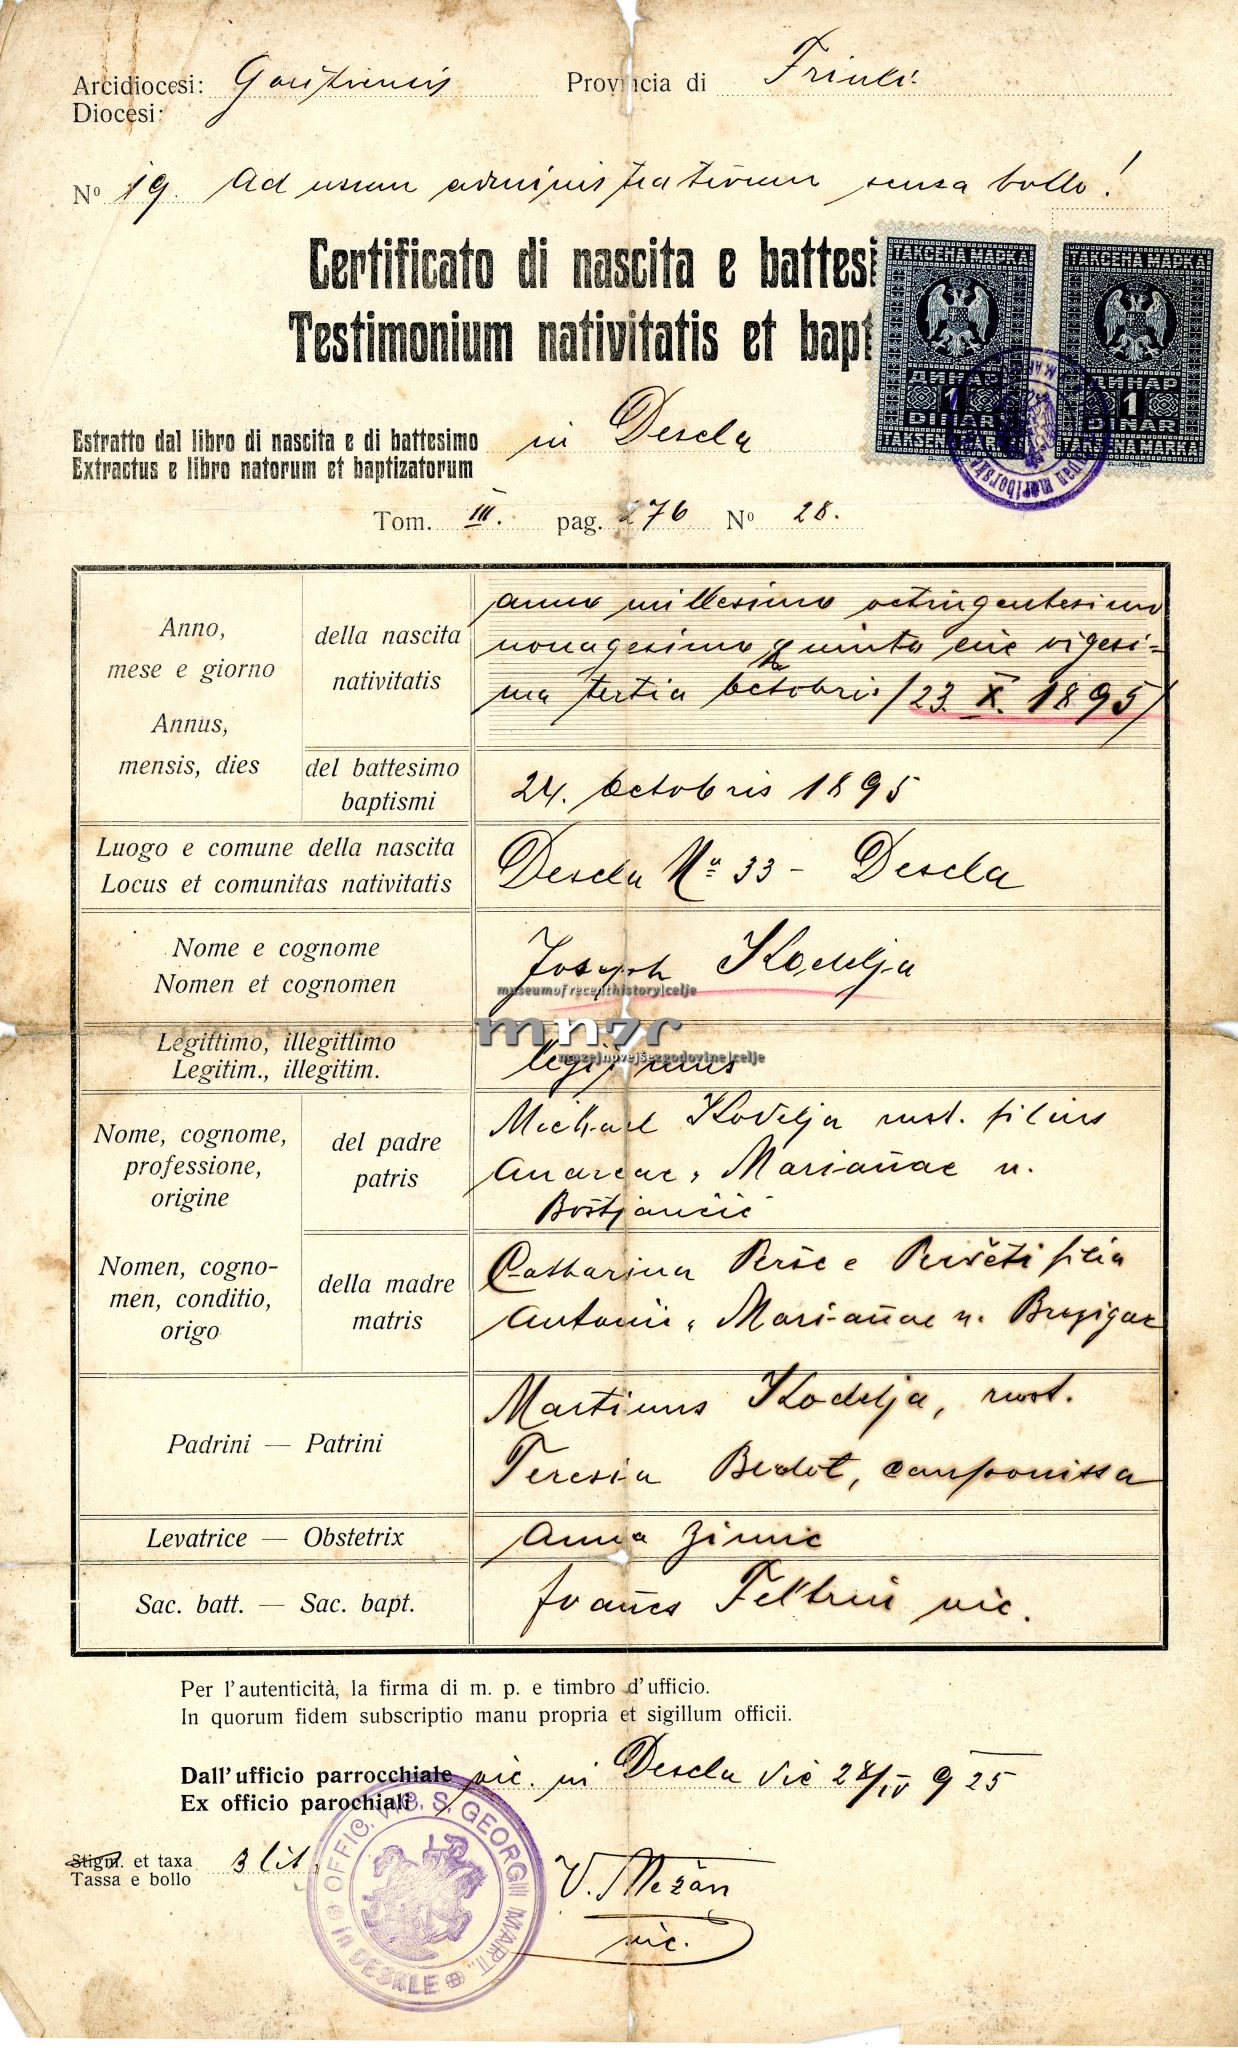 Arcidiocesi: Goritiensis Provincia di Friuli.
Diocesi:
Nº 19. Ad usum administrativum senza bollo!
Certificato di nascita e battesi
Testimonium nativitatis et bapt
ТАКСЕНА МАРКА ТАКСЕНА МАРКА
ДИНАР ДИНАР
1 1
DINAR DINAR
TAKSENA MARKA TAKSENA MARKA
Estratto dal libro di nascita e di battesimo in Descla
Extractus e libro natorum et baptizatorum
Tom. III. pag. 276 Nº 28.
Anno, mese e giorno
Annus, mensis, dies
della nascita
nativitatis
anno millesimo octingentesimo
nonagesimo quinto die vigesi-
ma tertia octobris /23. X. 1895/
del battesimo
baptismi
24. octobris 1895
Luogo e comune della nascita
Locus et comunitas nativitatis
Descla Nº 33 - Descla
Nome e cognome
Nomen et cognomen
Joseph Kodelja
museumofrecenthistory|celje
mnzc
muzejnovejšezgodovine|celje
Legittimo, illegittimo
Legitim., illegitim.
legitimus
Nome, cognome,
professione,
origine
Nomen, cogno-
men, conditio,
origo
del padre
patris
Michael Kodelja rust. filius
Andreae, Mariañae n.
Boštjančič
della madre
matris
Catharina Perše e filia
Antonii, Mariañae n.
Padrini — Patrini
Martinus Kodelja, rust.
Teresia Bedot, camponissa
Levatrice — Obstetrix
Anna Zimic
Sac. batt. — Sac. bapt.
Joañes Feltrin vic.
Per l'autenticità, la firma di m. p. e timbro d'ufficio.
In quorum fidem subscriptio manu propria et sigillum officii.
Dall'ufficio parrocchiale vic. in Descla die 28/IV 925
Ex officio parochiali
Stigm. et taxa 3 lit.
Tassa e bollo
OFFIC. VIC. S. GEORGII MART., in DESKLE
V. Mežan
vic.